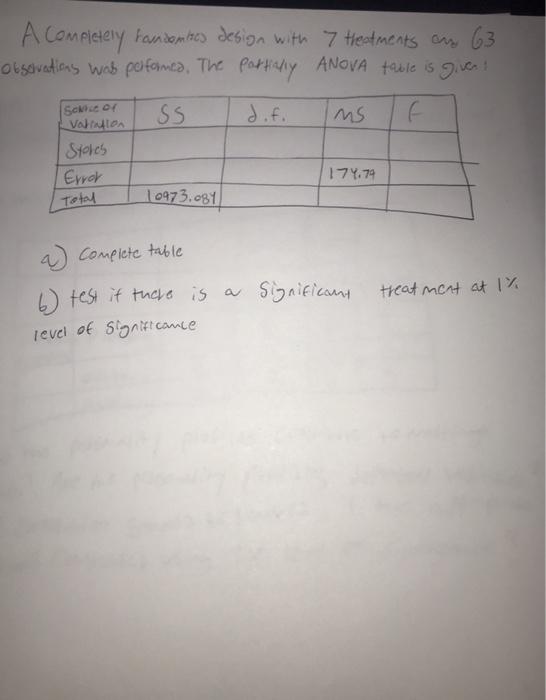 A Completely randomizes design with 7 treatments and 63
observations was performed. The Partially ANOVA table is given:
Source of Variation SS d.f. MS F
Stores
Error 174.79
Total 10973.084
a) Complete table
b) test if there is a significant treatment at 1%
level of significance